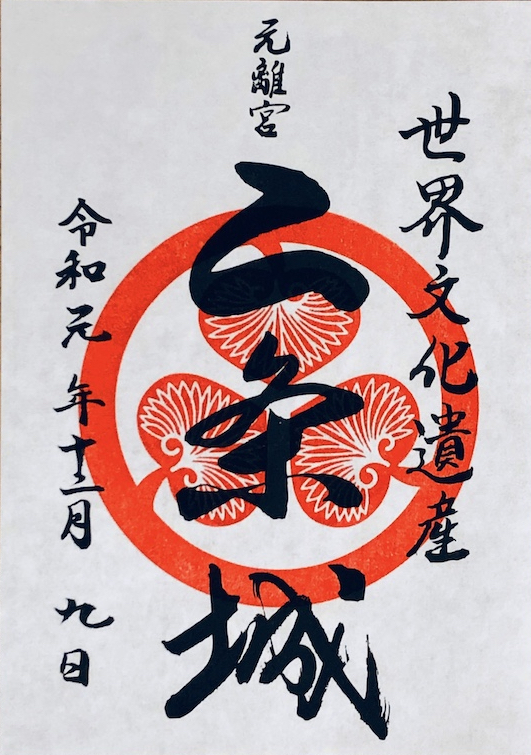 世界文化遺産
元離宮
二条城
令和元年十二月九日